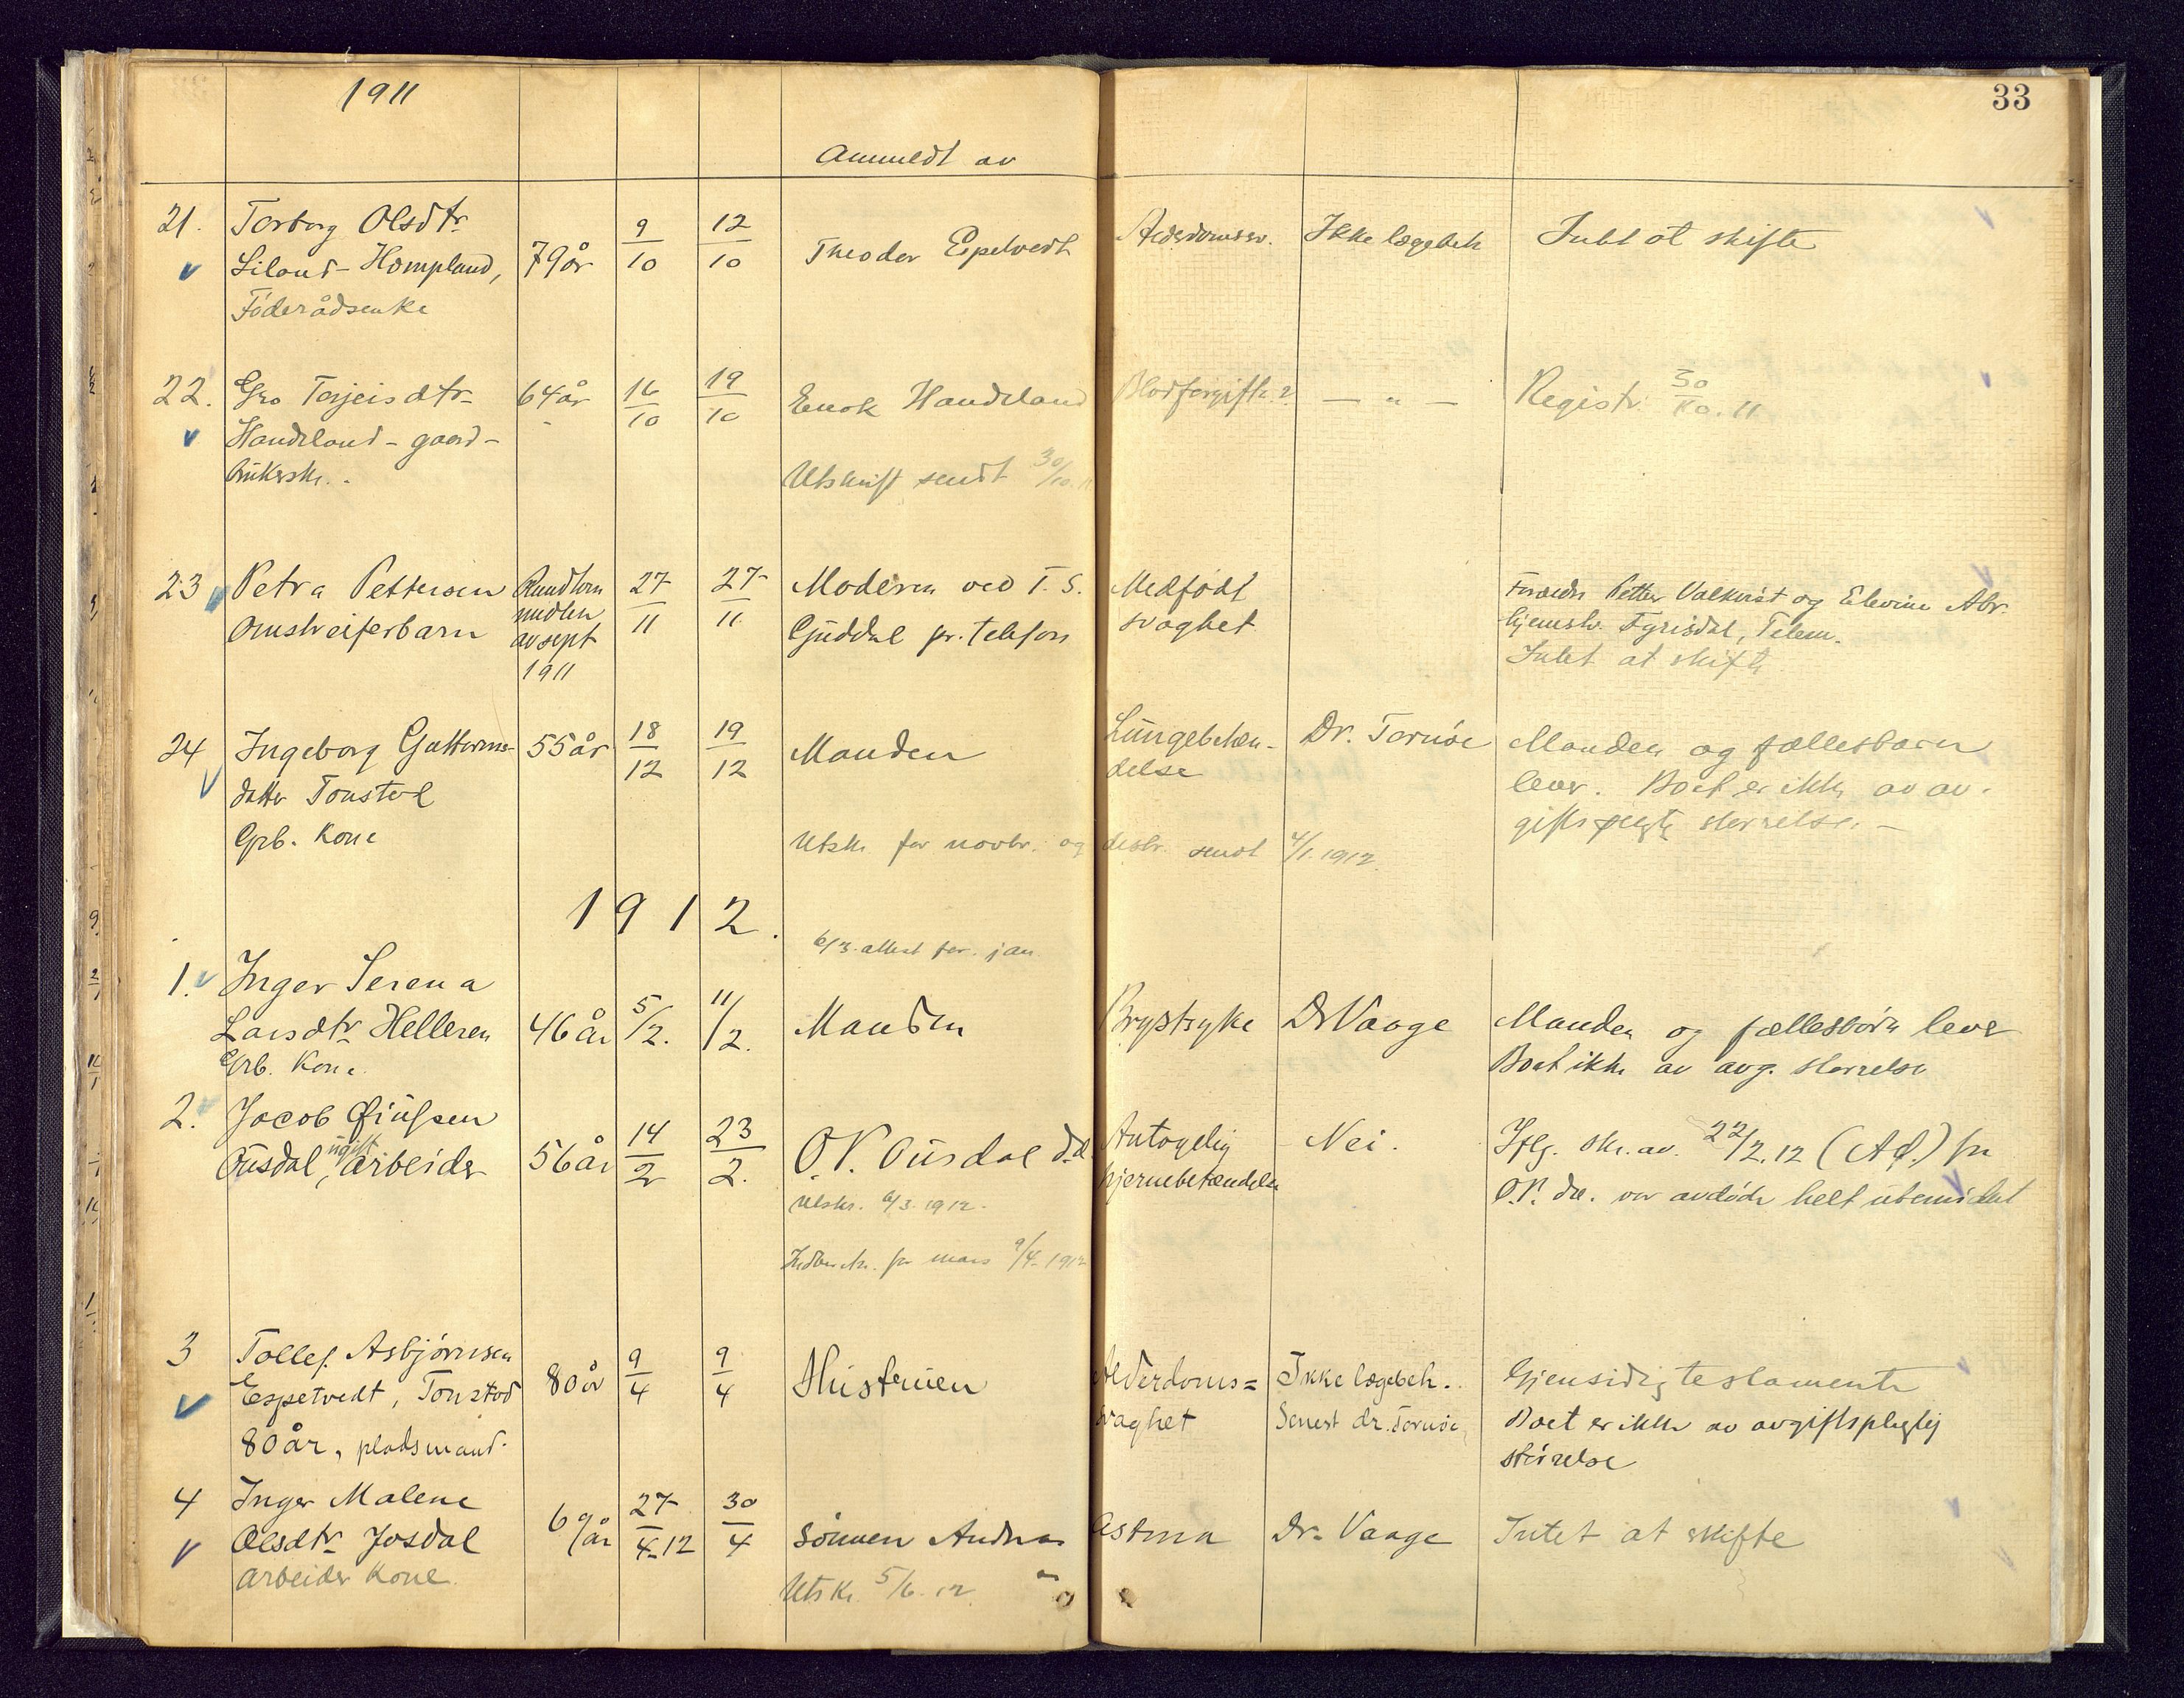 1911
33
Anmeldt av
21. Torborg Olsdtr.
Liland-Hompland,
Föderådsenke
79 år
9/10
12/10
Theodor Espetvedt
Alderdomssv.
Ikke lægebeh
Intet at skifte
22. Gro Terjeisdtr.
Handeland - gaard-
brukerske.
64 år
16/10
19/10
Enok Handeland
Utskrift sendt 30/10. 11
Blodforgiftn. ?
— " —
Registr. 30/10. 11
23 Petra Pettersen
Omstreiferbarn
Rundt om
midten
av sept
1911
27/11
27/11
Moderen ved T. S.
Guddal pr. telefon
Medfødt
svaghet
Petter Valkvist og Elevine Abr.
hjemsh. Fyrisdal, Telem.
Intet at skifte
24 Ingeborg Guttorms-
datter Tonstøl
Grb. Kone
55 år
18/12
19/12
Manden
Utskr. for novbr. og desbr. sendt 4/1. 1912.
Lungebeten-
delse
Dr. Tornøe
Manden og fællesbarn
lever. Boet er ikke av av-
giftspligtig størrelse. —
1912.
6/3. attest for jan.
1. Inger Serena
Larsdtr. Helleren
Grb. Kone.
46 år
5/2.
11/2.
Manden
Brystsyke
Dr Vaage
Manden og fællesbörn lever
Boet ikke av avg. størrelse
2. Jacob
Ousdal, ugift arbeider
56 år
14/2
23/2.
O. P. Ousdal d.d
Utskr. 6/3. 1912.
for mars 9/4. 1912
Antagelig
hjernebetændelse
Nei.
Iflg. skr. av. 22/2. 12 (A d.) fra
O.P. do. var avdøde helt ubemidlet
3 Tollef Asbjörnsen
Espetvedt, Tonstad
80 år, pladsmand.
80 år
9/4
9/4
Hustruen
Alderdoms=
svaghet
Ikke lægebeh.
Senest dr. Tornøe,
Gjensidig testamente
Boet er ikke av avgiftspligtig
størrelse
4 Inger Malene
Olsdtr. Josdal
Arbeider Kone.
69 år
27/4-12
30/4
Sönnen Andreas
Utskr. 5/6. 12.
Astma
Dr. Vaage
Intet at skifte